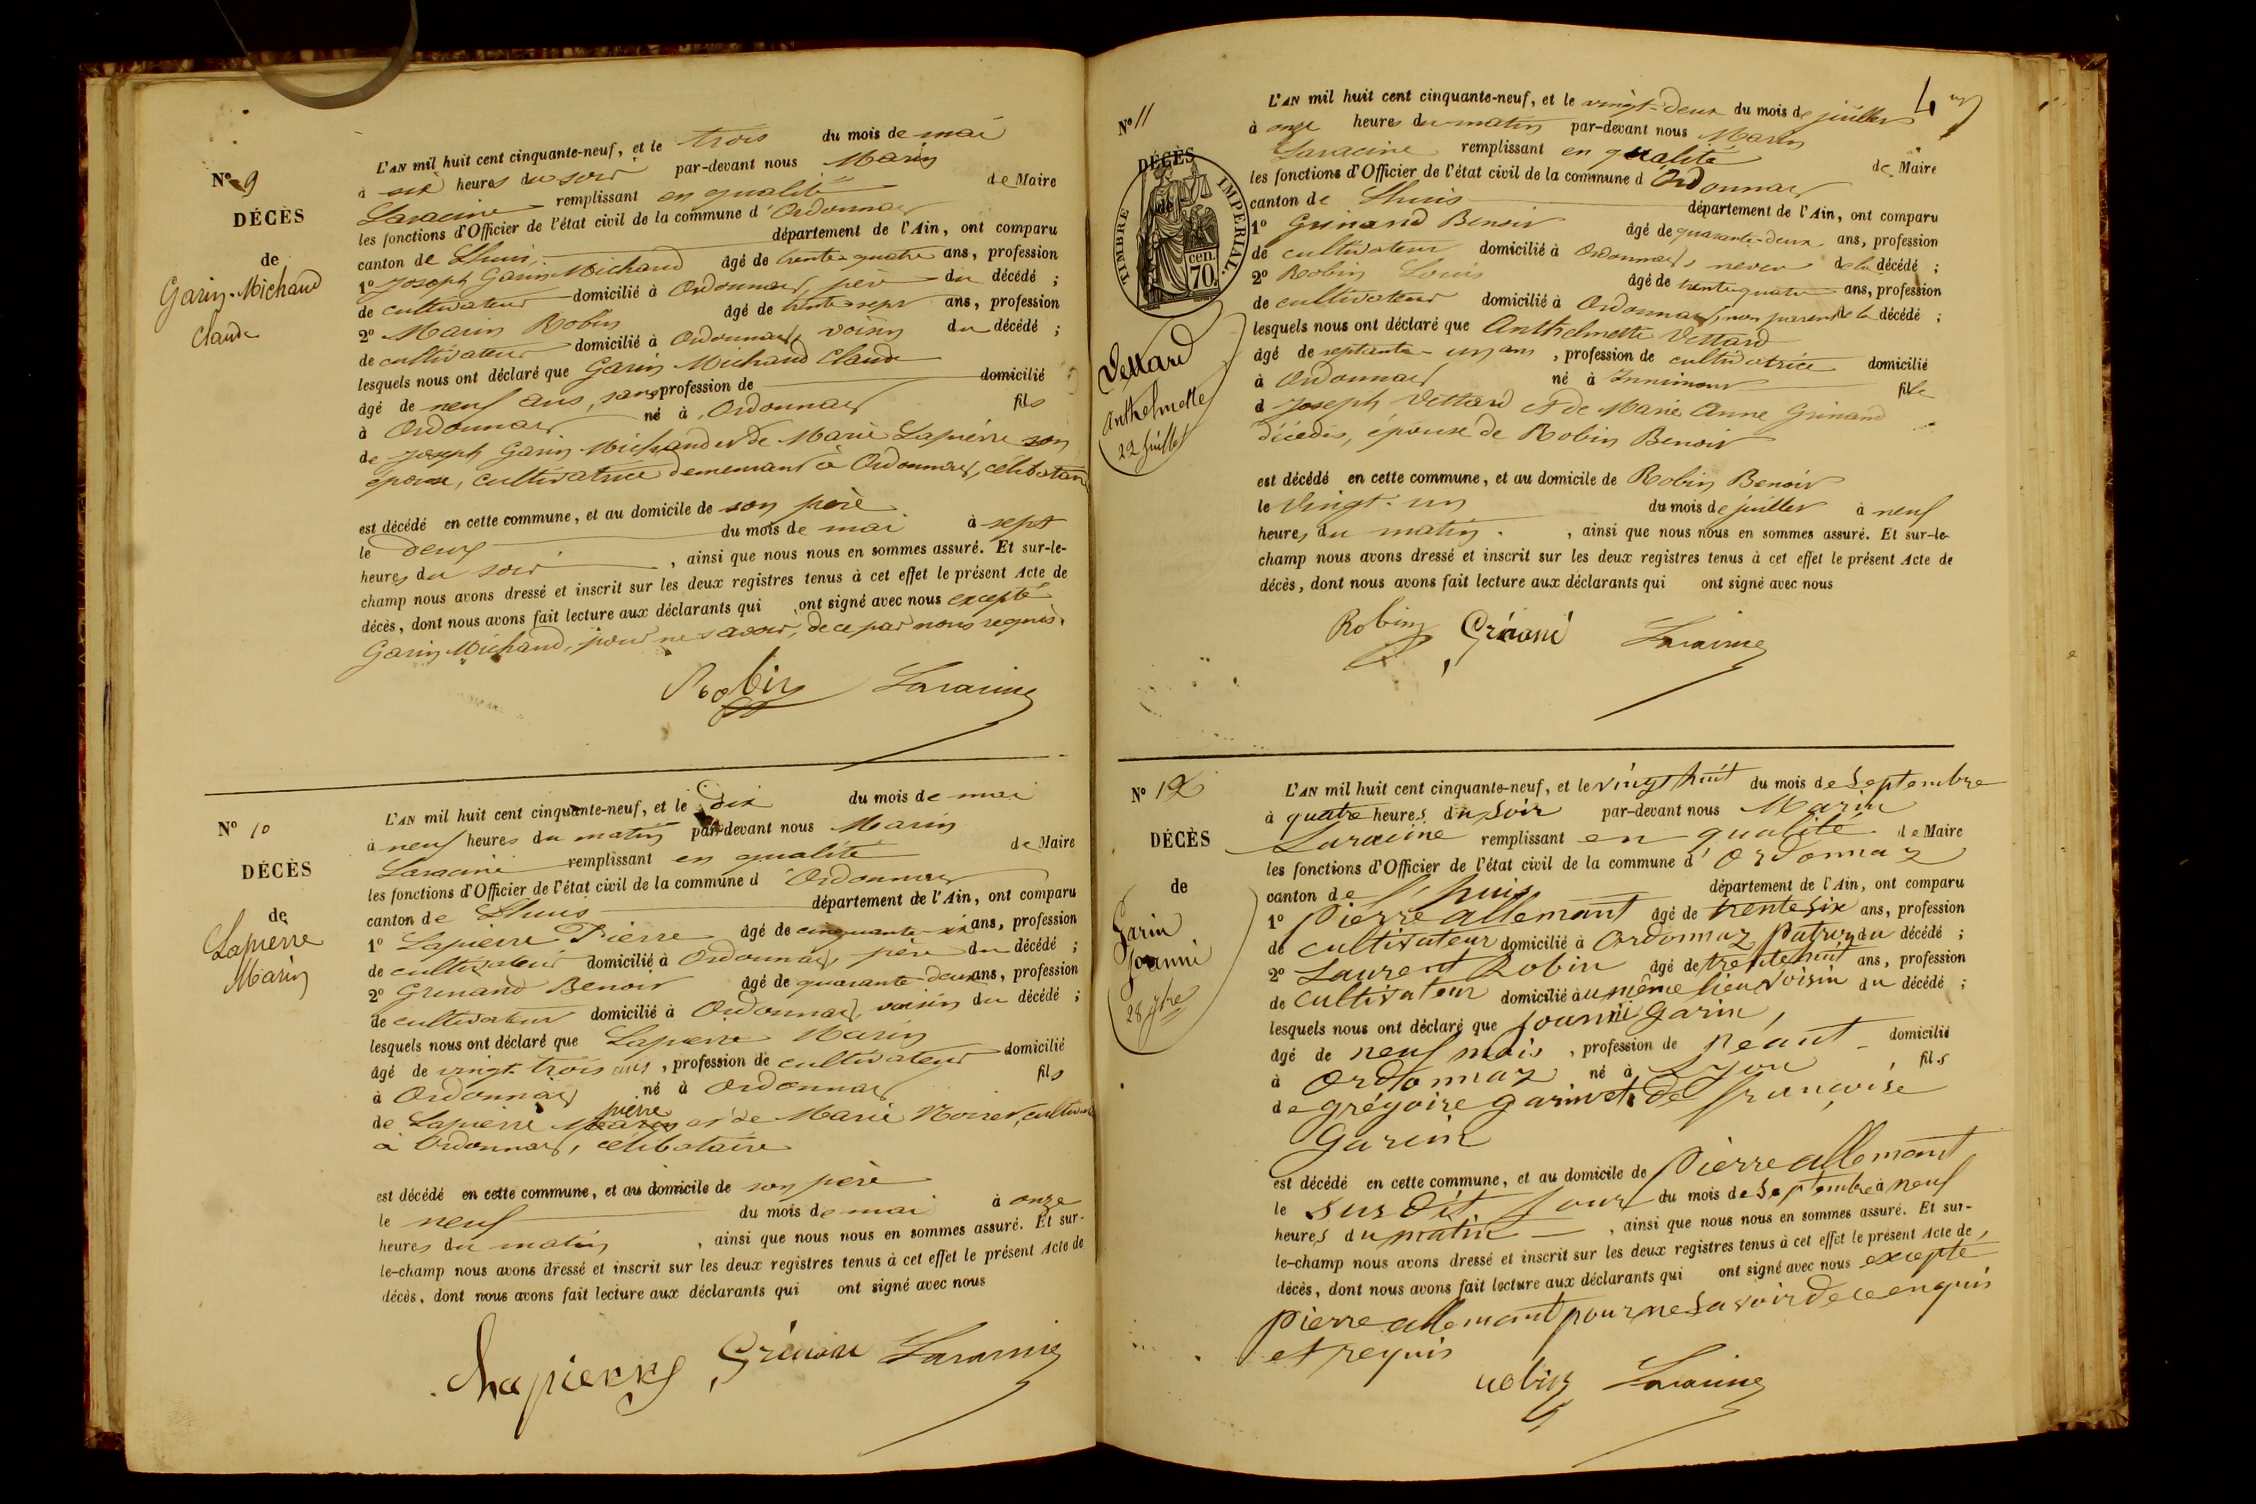 Nº 9
DÉCÈS
de
Garin-Michaud
Claude
L'AN mil huit cent cinquante-neuf, et le trois du mois de mai
à six heures du soir par-devant nous Marin
Laracine remplissant en qualité de Maire
les fonctions d'Officier de l'état civil de la commune d'Ordonnaz
canton de Lhuis département de l'Ain, ont comparu
1º Joseph Garin Michaud âgé de trente-quatre ans, profession
de cultivateur domicilié à Ordonnaz, père du décédé ;
2º Marin Robin âgé de trente-sept ans, profession
de cultivateur domicilié à Ordonnaz, voisin du décédé ;
lesquels nous ont déclaré que Garin Michaud Claude
âgé de neuf ans, sans profession de domicilié
à Ordonnaz né à Ordonnaz fils
de Joseph Garin Michaud et de Marie Lapierre son
épouse, cultivatrice demeurant à Ordonnaz, célibataire
est décédé en cette commune, et au domicile de son père
le deux du mois de mai à sept
heures du soir, ainsi que nous nous en sommes assuré. Et sur-le-
champ nous avons dressé et inscrit sur les deux registres tenus à cet effet le présent Acte de
décès, dont nous avons fait lecture aux déclarants qui ont signé avec nous excepté
Garin Michaud, pour ne savoir, de ce par nous requis.
Robin Laracine
Nº 10
DÉCÈS
de
Lapierre
Marin
L'AN mil huit cent cinquante-neuf, et le dix du mois de mai
à neuf heures du matin par-devant nous Marin
Laracine remplissant en qualité de Maire
les fonctions d'Officier de l'état civil de la commune d'Ordonnaz
canton de Lhuis département de l'Ain, ont comparu
1º Lapierre Pierre âgé de cinquante-six ans, profession
de cultivateur domicilié à Ordonnaz, père du décédé ;
2º Grinand Benoit âgé de quarante-deux ans, profession
de cultivateur domicilié à Ordonnaz, voisin du décédé ;
lesquels nous ont déclaré que Lapierre Marin
âgé de vingt trois ans, profession de cultivateur domicilié
à Ordonnaz né à Ordonnaz fils
pierre
de Lapierre Marin et de Marie
à Ordonnaz, célibataire
est décédé en cette commune, et au domicile de son père
le neuf du mois de mai à onze
heures du matin, ainsi que nous nous en sommes assuré. Et sur-
le-champ nous avons dressé et inscrit sur les deux registres tenus à cet effet le présent Acte de
décès, dont nous avons fait lecture aux déclarants qui ont signé avec nous
Lapierre Grinand Laracine
4
Nº 11
DÉCÈS
de
TIMBRE IMPÉRIAL.
70 cen.
Vettard
Anthelmette
22 Juillet
L'AN mil huit cent cinquante-neuf, et le vingt-deux du mois de juillet
à onze heures du matin par-devant nous Marin
Laracine remplissant en qualité de Maire
les fonctions d'Officier de l'état civil de la commune d'Ordonnaz
canton de Lhuis département de l'Ain, ont comparu
1º Grinand Benoit âgé de quarante-deux ans, profession
de cultivateur domicilié à Ordonnaz, neveu de la décédé ;
2º Robin Louis âgé de trente quatre ans, profession
de cultivateur domicilié à Ordonnaz, non parent de la décédé ;
lesquels nous ont déclaré que Anthelmette Vettard
âgé de septante-un ans, profession de cultivatrice domicilié
à Ordonnaz né à Innimont fille
d Joseph Vettard et de Marie Anne Grinand
décédés, épouse de Robin Benoit
est décédé en cette commune, et au domicile de Robin Benoit
le Vingt-un du mois de juillet à neuf
heures du matin, ainsi que nous nous en sommes assuré. Et sur-le-
champ nous avons dressé et inscrit sur les deux registres tenus à cet effet le présent Acte de
décès, dont nous avons fait lecture aux déclarants qui ont signé avec nous
Robin Grinand Laracine
Nº 12
DÉCÈS
de
Garin
Joanni
28 7bre
L'AN mil huit cent cinquante-neuf, et le vingt huit du mois de Septembre
à quatre heures du soir par-devant nous Marin
Laracine remplissant en qualité de Maire
les fonctions d'Officier de l'état civil de la commune d'Ordonnaz
canton de Lhuis département de l'Ain, ont comparu
1º Pierre allemant âgé de trente six ans, profession
de cultivateur domicilié à Ordonnaz Patron du décédé ;
2º Laurent Robin âgé de trente huit ans, profession
de cultivateur domicilié au même lieu voisin du décédé ;
lesquels nous ont déclaré que Joanni Garin,
âgé de neuf mois, profession de néant domicilié
à Ordonnaz né à Lyon fils
de grégoire garin et de françoise
Garin
est décédé en cette commune, et au domicile de Pierre allemant
le susdit jour du mois de Septembre à neuf
heures du matin, ainsi que nous nous en sommes assuré. Et sur-
le-champ nous avons dressé et inscrit sur les deux registres tenus à cet effet le présent Acte de
décès, dont nous avons fait lecture aux déclarants qui ont signé avec nous excepté
Pierre allemant pour ne savoir de ce enquis
et requis
Robin Laracine